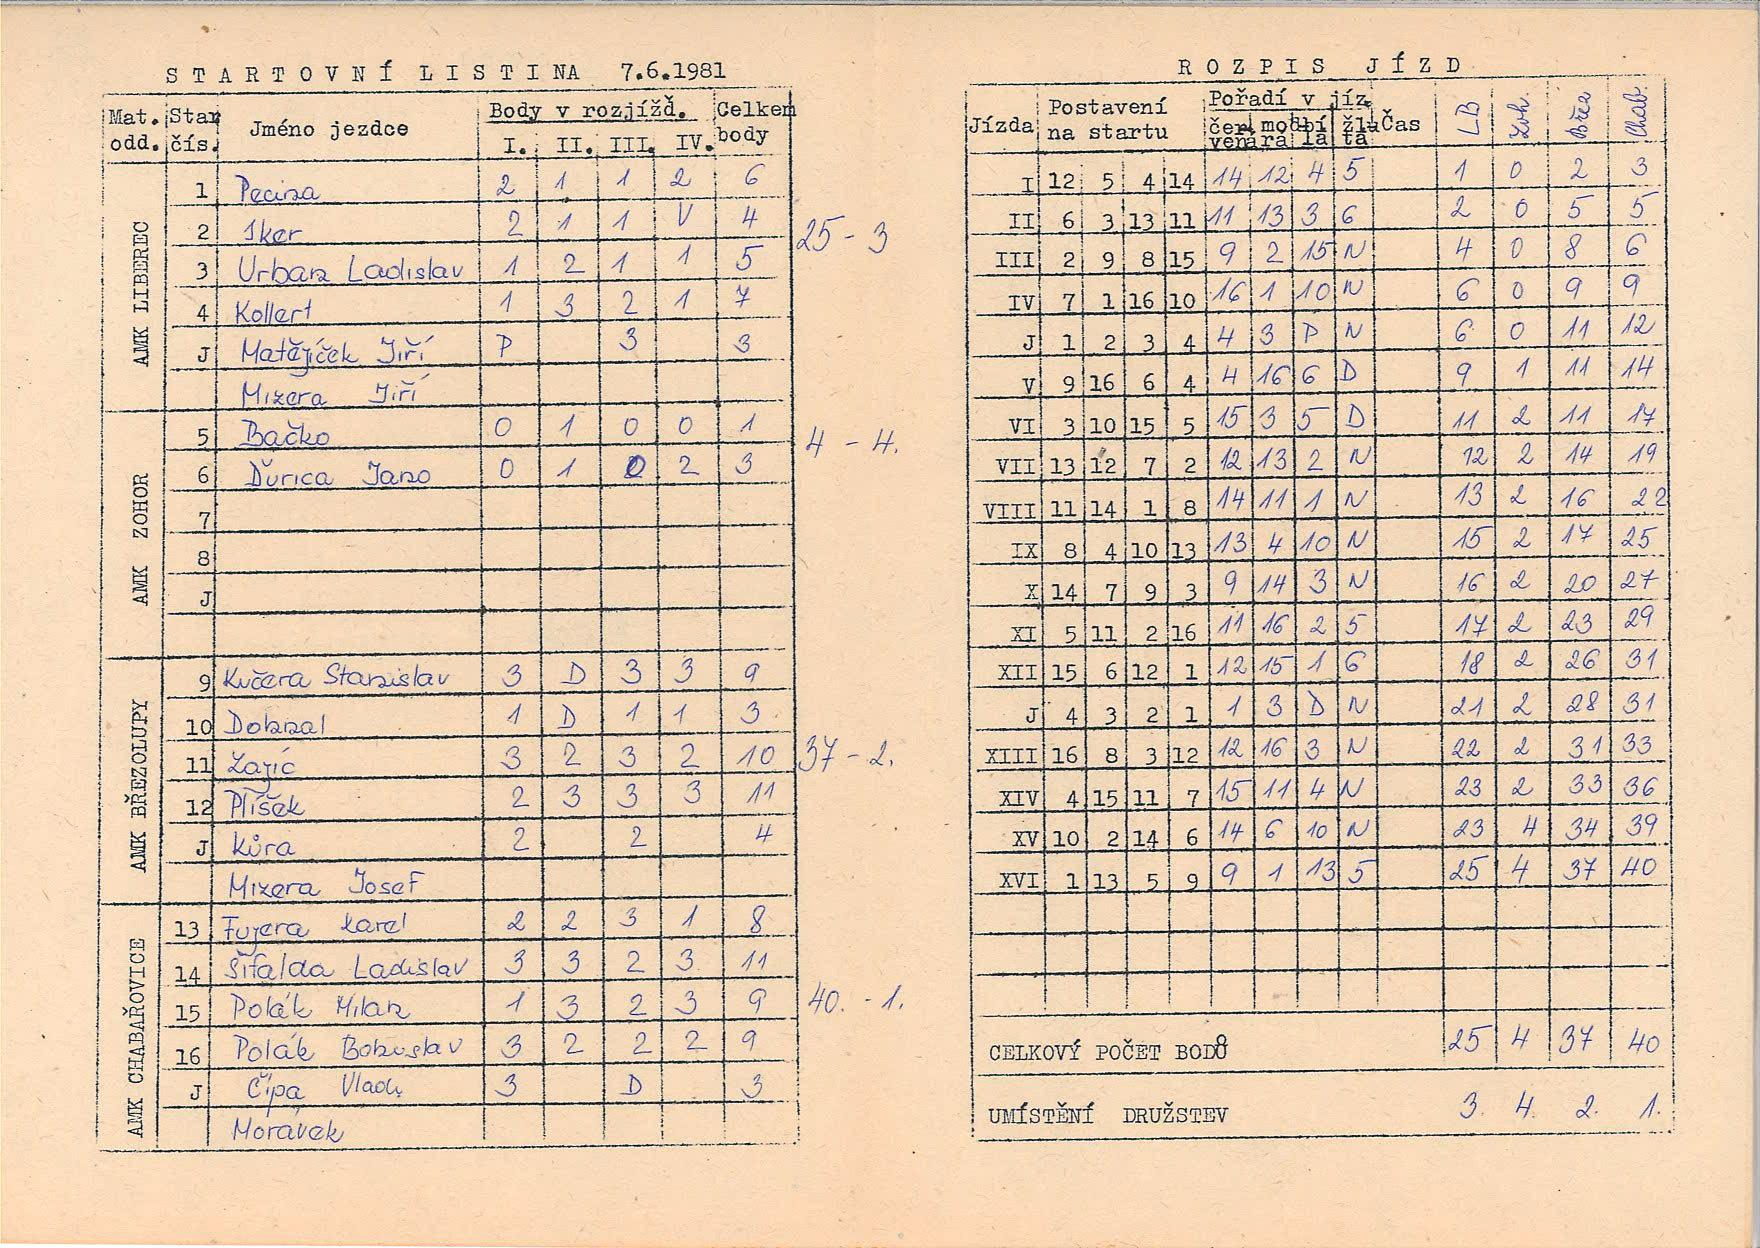 STARTOVNÍ LISTINA 7.6.1981
Mat. odd. Star čís. Jméno jezdce Body v rozjížď. I. II. III. IV. Celkem body
AMK LIBEREC
1 Pecina 2 1 1 2 6
2 Iker 2 1 1 V 4 25 - 3
3 Urban Ladislav 1 2 1 1 5
4 Kollert 1 3 2 1 7
J Matějíček Jiří P 3 3
Mizera Jiří
AMK ZOHOR
5 Bačko 0 1 0 0 1 4 - 4.
6 Ďurica Jano 0 1 0 2 3
7
8
J
AMK BŘEZOLUPY
9 Kučera Stanislav 3 D 3 3 9
10 Dobnal 1 D 1 1 3
11 Zajíc 3 2 3 2 10 37 - 2.
12 Plíšek 2 3 3 3 11
J Kůra 2 2 4
Mizera Josef
AMK CHABAŘOVICE
13 Fujera Karel 2 2 3 1 8
14 Šifalda Ladislav 3 3 2 3 11
15 Polák Milan 1 3 2 3 9 40. - 1.
16 Polák Bohuslav 3 2 2 2 9
J Čípa Vlad. 3 D 3
Morávek
ROZPIS JÍZD
Jízda Postavení na startu Pořadí v jíz. červená modrá bílá žlutá Čas LB Zoh. Břez Chab.
I 12 5 4 14 14 12 4 5 1 0 2 3
II 6 3 13 11 11 13 3 6 2 0 5 5
III 2 9 8 15 9 2 15 N 4 0 8 6
IV 7 1 16 10 16 1 10 N 6 0 9 9
J 1 2 3 4 4 3 P N 6 0 11 12
V 9 16 6 4 4 16 6 D 9 1 11 14
VI 3 10 15 5 15 3 5 D 11 2 11 17
VII 13 12 7 2 12 13 2 N 12 2 14 19
VIII 11 14 1 8 14 11 1 N 13 2 16 22
IX 8 4 10 13 13 4 10 N 15 2 17 25
X 14 7 9 3 9 14 3 N 16 2 20 27
XI 5 11 2 16 11 16 2 5 17 2 23 29
XII 15 6 12 1 12 15 1 6 18 2 26 31
J 4 3 2 1 1 3 D N 21 2 28 31
XIII 16 8 3 12 12 16 3 N 22 2 31 33
XIV 4 15 11 7 15 11 4 N 23 2 33 36
XV 10 2 14 6 14 6 10 N 23 4 34 39
XVI 1 13 5 9 9 1 13 5 25 4 37 40
CELKOVÝ POČET BODŮ 25 4 37 40
UMÍSTĚNÍ DRUŽSTEV 3. 4. 2. 1.